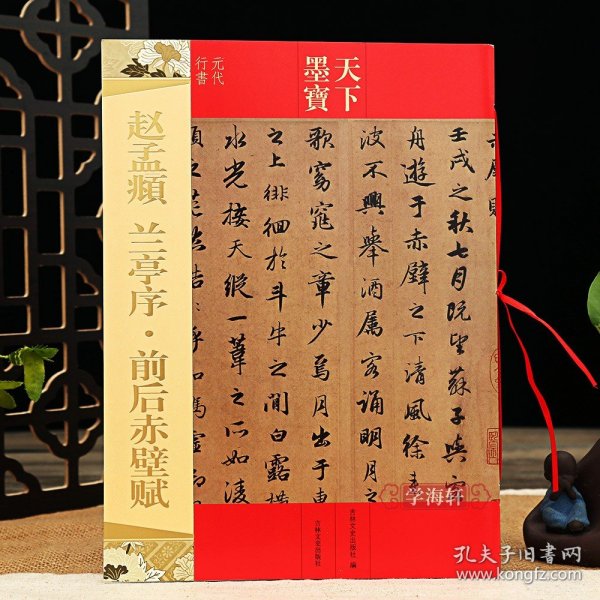 天下
墨寶
元代
行書
赵孟頫 兰亭序·前后赤壁赋
壬戌之秋七月既望蘇子與客
舟遊于赤壁之下清風徐来
波不興舉酒屬客誦明月之
歌窈窕之章少焉月出于東
之上徘徊於斗牛之間白露横
水光接天縱一葦之所如淩
頃之茫然浩浩乎如馮虚御
吉林文史出版社 編
吉林文史出版社
学海轩
孔夫子旧書网
www.kongfz.com